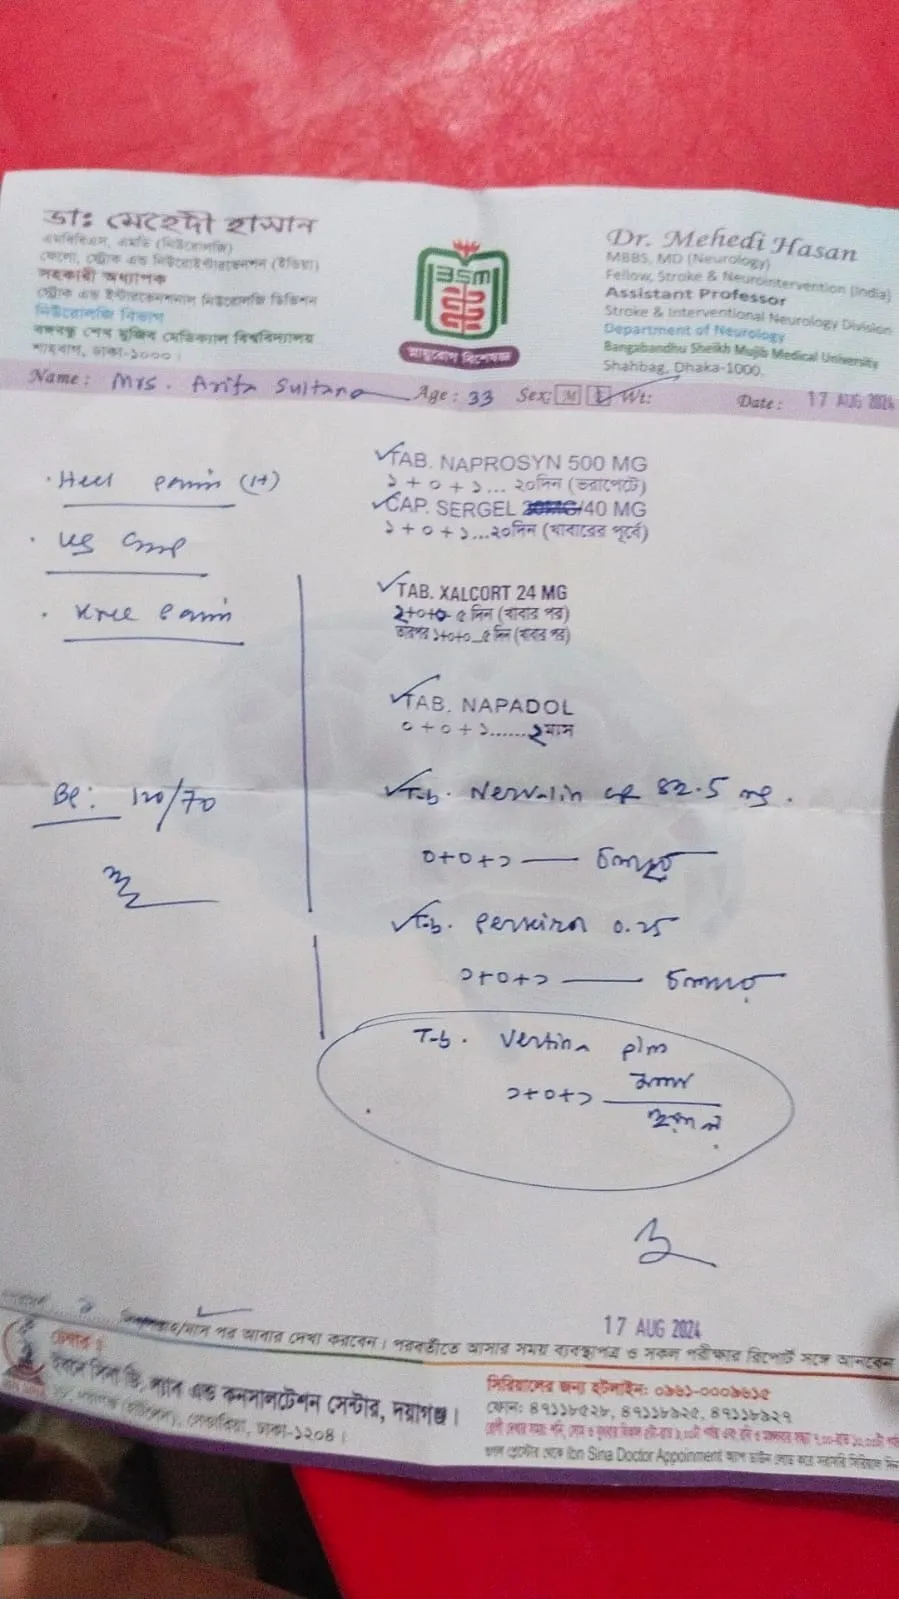 ডাঃ মেহেদী হাসান
এমবিবিএস, এমডি (নিউরোলজি)
ফেলো, স্ট্রোক এন্ড নিউরোইন্টারভেনশন (ইন্ডিয়া)
সহকারী অধ্যাপক
স্ট্রোক এন্ড ইন্টারভেনশনাল নিউরোলজি ডিভিশন
নিউরোলজি বিভাগ
বঙ্গবন্ধু শেখ মুজিব মেডিক্যাল বিশ্ববিদ্যালয়
শাহবাগ, ঢাকা-১০০০।
স্নায়ুরোগ বিশেষজ্ঞ
Dr. Mehedi Hasan
MBBS, MD (Neurology)
Fellow, Stroke & Neurointervention (India)
Assistant Professor
Stroke & Interventional Neurology Division
Department of Neurology
Bangabandhu Sheikh Mujib Medical University
Shahbag, Dhaka-1000.
Name: Mrs. Arifa Sultana Age: 33 Sex: M F Wt: Date: 17 AUG 2024
Heel pain (H)
Knee pain
BP: 120/70
TAB. NAPROSYN 500 MG
১+০+১... ২০দিন (ভরাপেটে)
CAP. SERGEL 20MG/40 MG
১+০+১...২০দিন (খাবারের পূর্বে)
TAB. XALCORT 24 MG
২+০+০ ৫ দিন (খাবার পর)
তারপর ১+০+০_৫ দিন (খাবার পর)
TAB. NAPADOL
০+০+১......২মাস
Tab. Nervalin CR 82.5 mg.
০+০+১ — চলবে
Tab. 0.25
১+০+১ — চলবে
Tab. Vertina plus
১+০+১
17 AUG 2024
মাস পর আবার দেখা করবেন। পরবর্তীতে আসার সময় ব্যবস্থাপত্র ও সকল পরীক্ষার রিপোর্ট সঙ্গে আনবেন
চেম্বার :
ইবনে সিনা ডি. ল্যাব এন্ড কনসালটেশন সেন্টার, দয়াগঞ্জ।
গেন্ডারিয়া, ঢাকা-১২০৪।
সিরিয়ালের জন্য হটলাইন: ০৯৬১-০০০৯৬১৫
ফোন: ৪৭১১৮৫২৮, ৪৭১১৮৯২৫, ৪৭১১৮৯২৭
Ibn Sina Doctor Appoinment